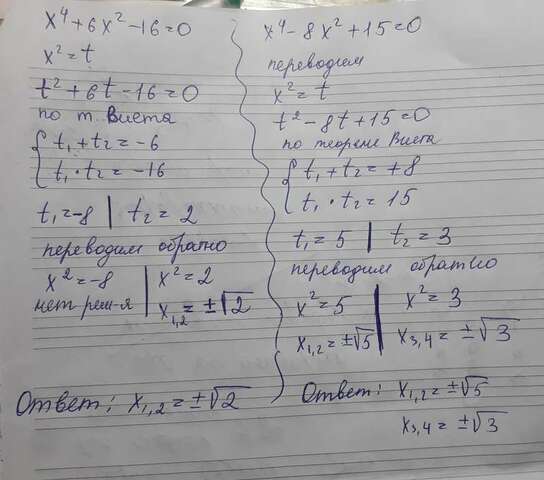 x⁴+6x²-16=0
x²=t
t²+6t-16=0
по т. Виета
{t₁+t₂=-6
t₁·t₂=-16
t₁=-8 | t₂=2
переводим обратно
x²=-8 | x²=2
нет реш-я | x₁,₂=±√2
Ответ: x₁,₂=±√2
x⁴-8x²+15=0
переводим
x²=t
t²-8t+15=0
по теореме Виета
{t₁+t₂=+8
t₁·t₂=15
t₁=5 | t₂=3
переводим обратно
x²=5 | x²=3
x₁,₂=±√5 | x₃,₄=±√3
Ответ: x₁,₂=±√5
x₃,₄=±√3